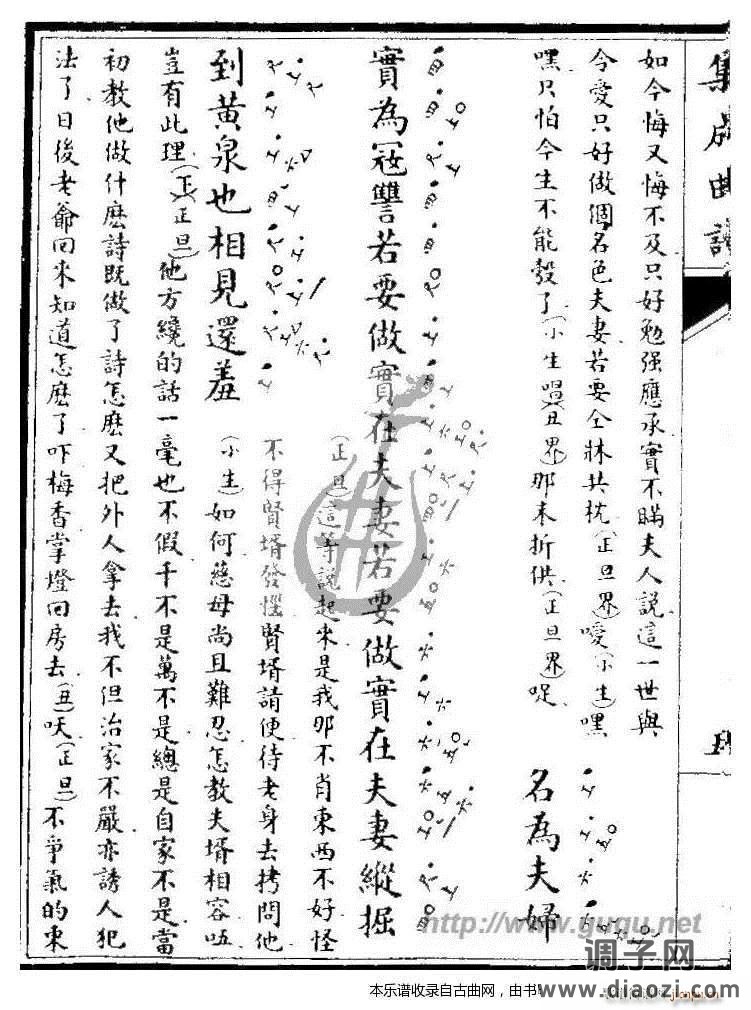 集成曲譜
如今悔又悔不及只好勉强應承實不瞞夫人説這一世與
令愛只好做個名色夫妻若要仝牀共枕(正旦界)嗳(小生)嘿
嘿只怕今生不能彀了(小生唱)(丑界)那末折供(正旦界)哫 名為夫婦
實為冦讐若要做實在夫妻若要做實在夫妻縱掘
(正旦)這等説起來是我那不肖東西不好怪
不得賢壻發惱賢壻請便待老身去拷問他
到黄泉也相見還羞 (小生)如何慈母尚且難忍怎教夫壻相容唔
豈有此理(下)(正旦)他方纔的話一毫也不假千不是萬不是總是自家不是當
初教他做什麽詩既做了詩怎麽又把外人拿去我不但治家不嚴亦誘人犯
法了日後老爺回來知道怎麽了吓梅香掌燈回房去(丑)吷(正旦)不爭氣的東
http://www.guqu.net
调子网
www.diaozi.com
本乐谱收录自古曲网，由书